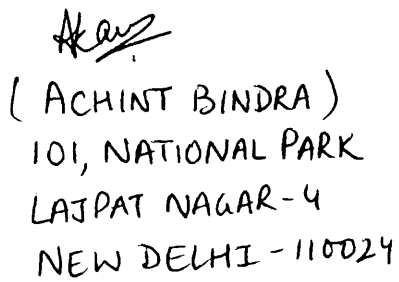 (ACHINT BINDRA)
101, NATIONAL PARK
LAJPAT NAGAR-4
NEW DELHI-110024